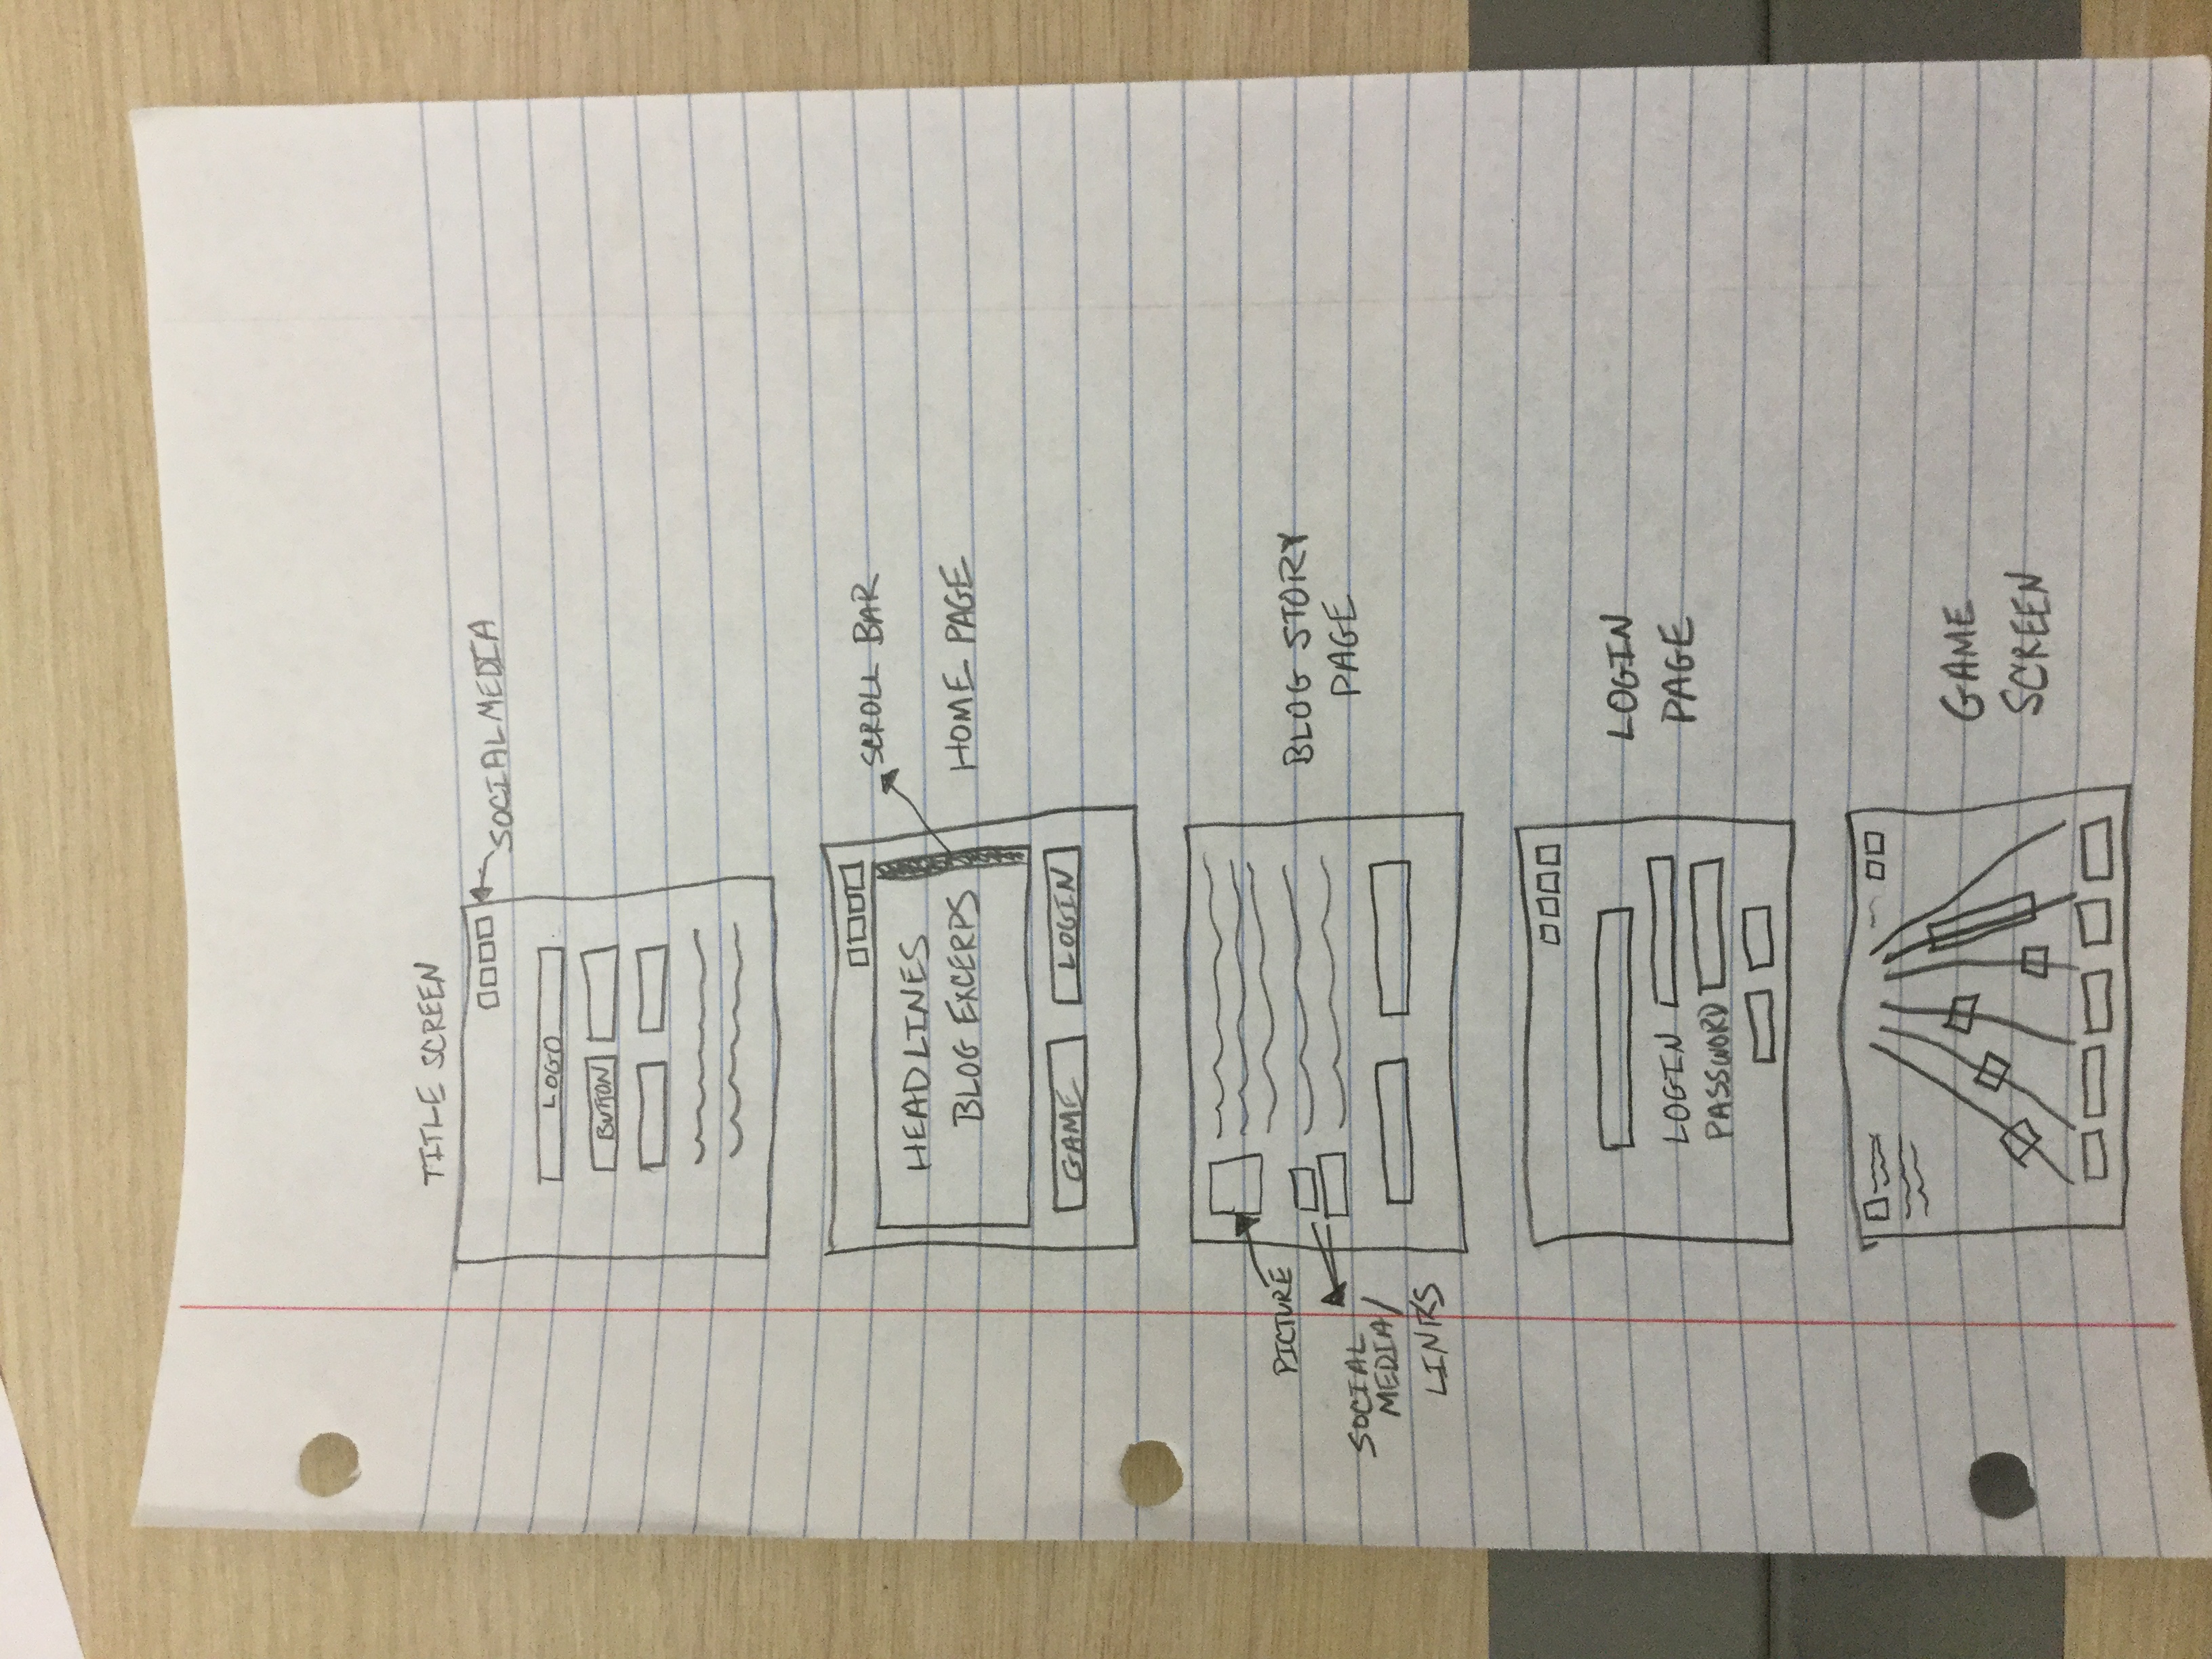 TITLE SCREEN
SOCIAL MEDIA
LOGO
BUTTON
SCROLL BAR
HEADLINES
BLOG EXCERPS
HOME PAGE
GAME LOGIN
PICTURE
SOCIAL
MEDIA/
LINKS
BLOG STORY
PAGE
LOGIN
PASSWORD
LOGIN
PAGE
GAME
SCREEN